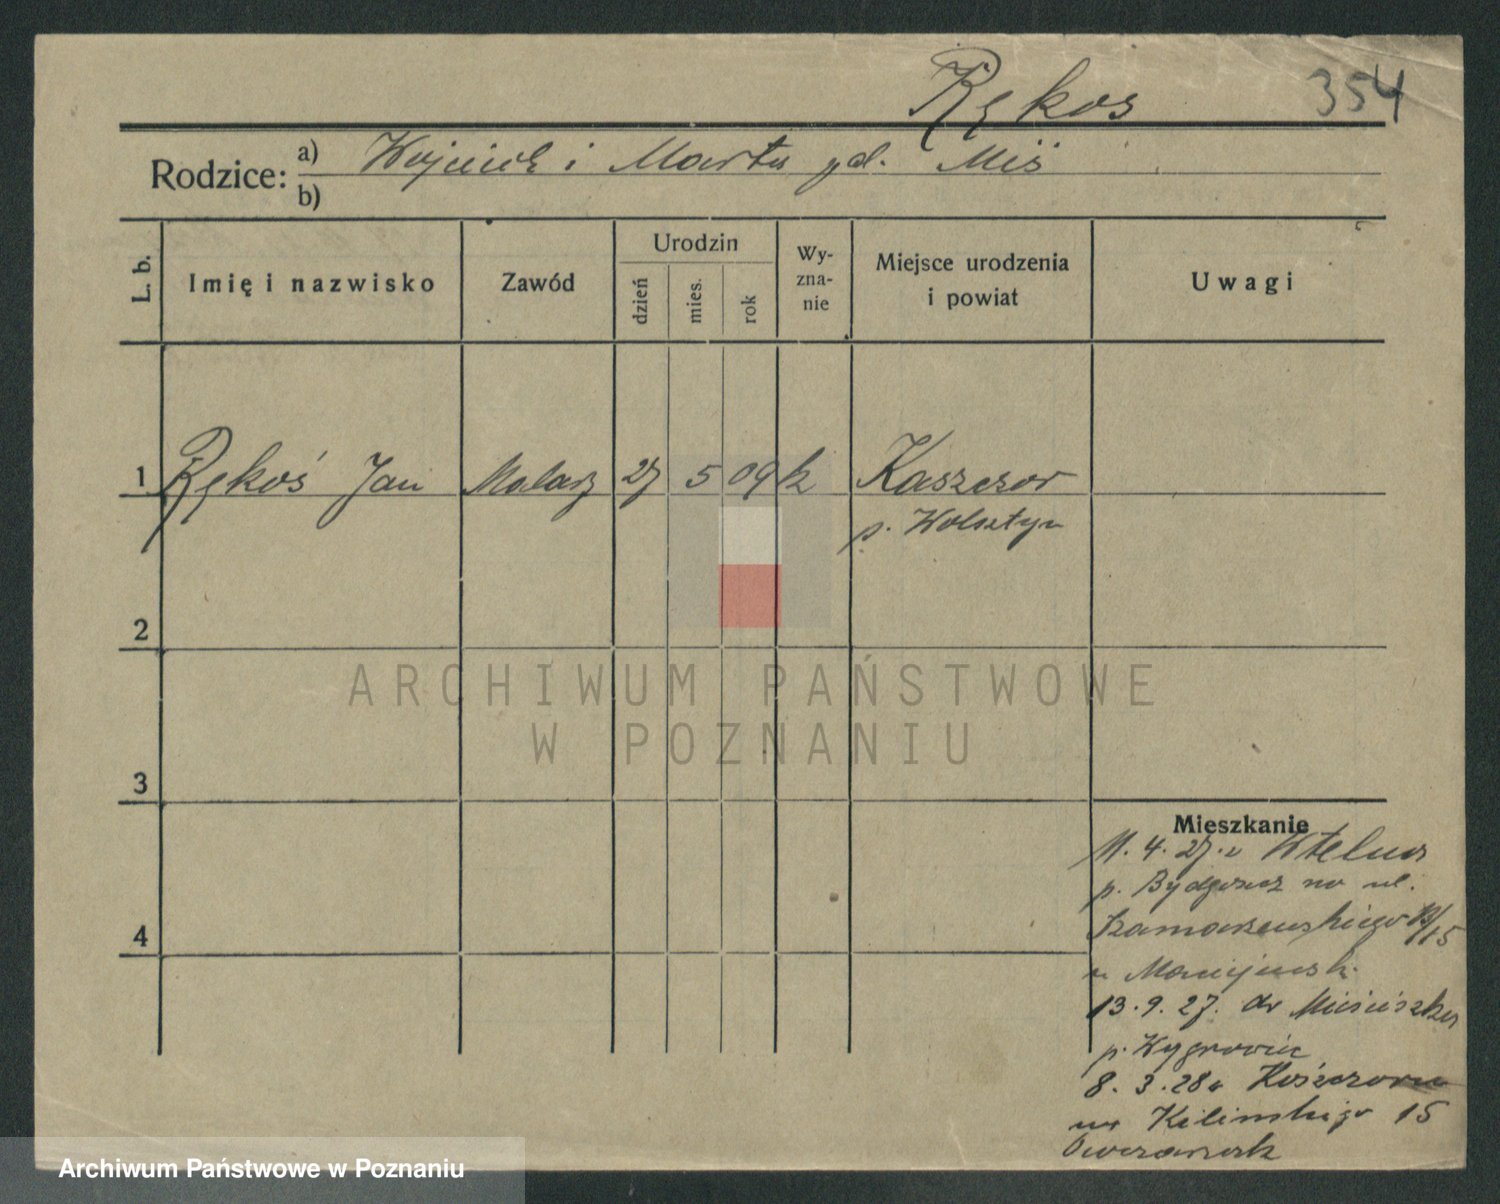 Rękoś
354
Rodzice: a) Wojciech i Marta zd. Miś
b)
L. b. Imię i nazwisko Zawód Urodzin dzień mies. rok Wy-zna-nie Miejsce urodzenia i powiat Uwagi
1 Rękoś Jan Malarz 27 5 09 k Kaszczor
p. Wolsztyn
2
3
4
Mieszkanie
11. 4. 27. z Wtelna
p. Bydgoszcz na ul.
Szamarzewskiego 13/15
u Maciejewsk.
13. 9. 27. do Mieściska
p. Wągrowiec
8. 3. 28 z Kaszczoru
na Kilińskiego 15
Owczarzak
ARCHIWUM PAŃSTWOWE
W POZNANIU
Archiwum Państwowe w Poznaniu